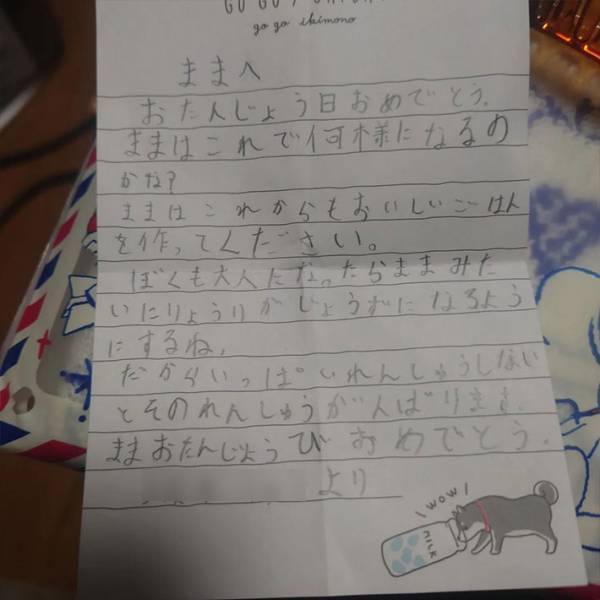 go go ikimono
ままへ
おたんじょう日おめでとう。
ままはこれで何様になるの
かな?
ままはこれからもおいしいごはん
を作ってください。
ぼくも大人になったらままみた
いにりょうりがじょうずになるよう
にするね。
だからいっぱいれんしゅうしない
とそのれんしゅうがんばります。
ままおたんじょうびおめでとう。
より
\WOW/
MILK